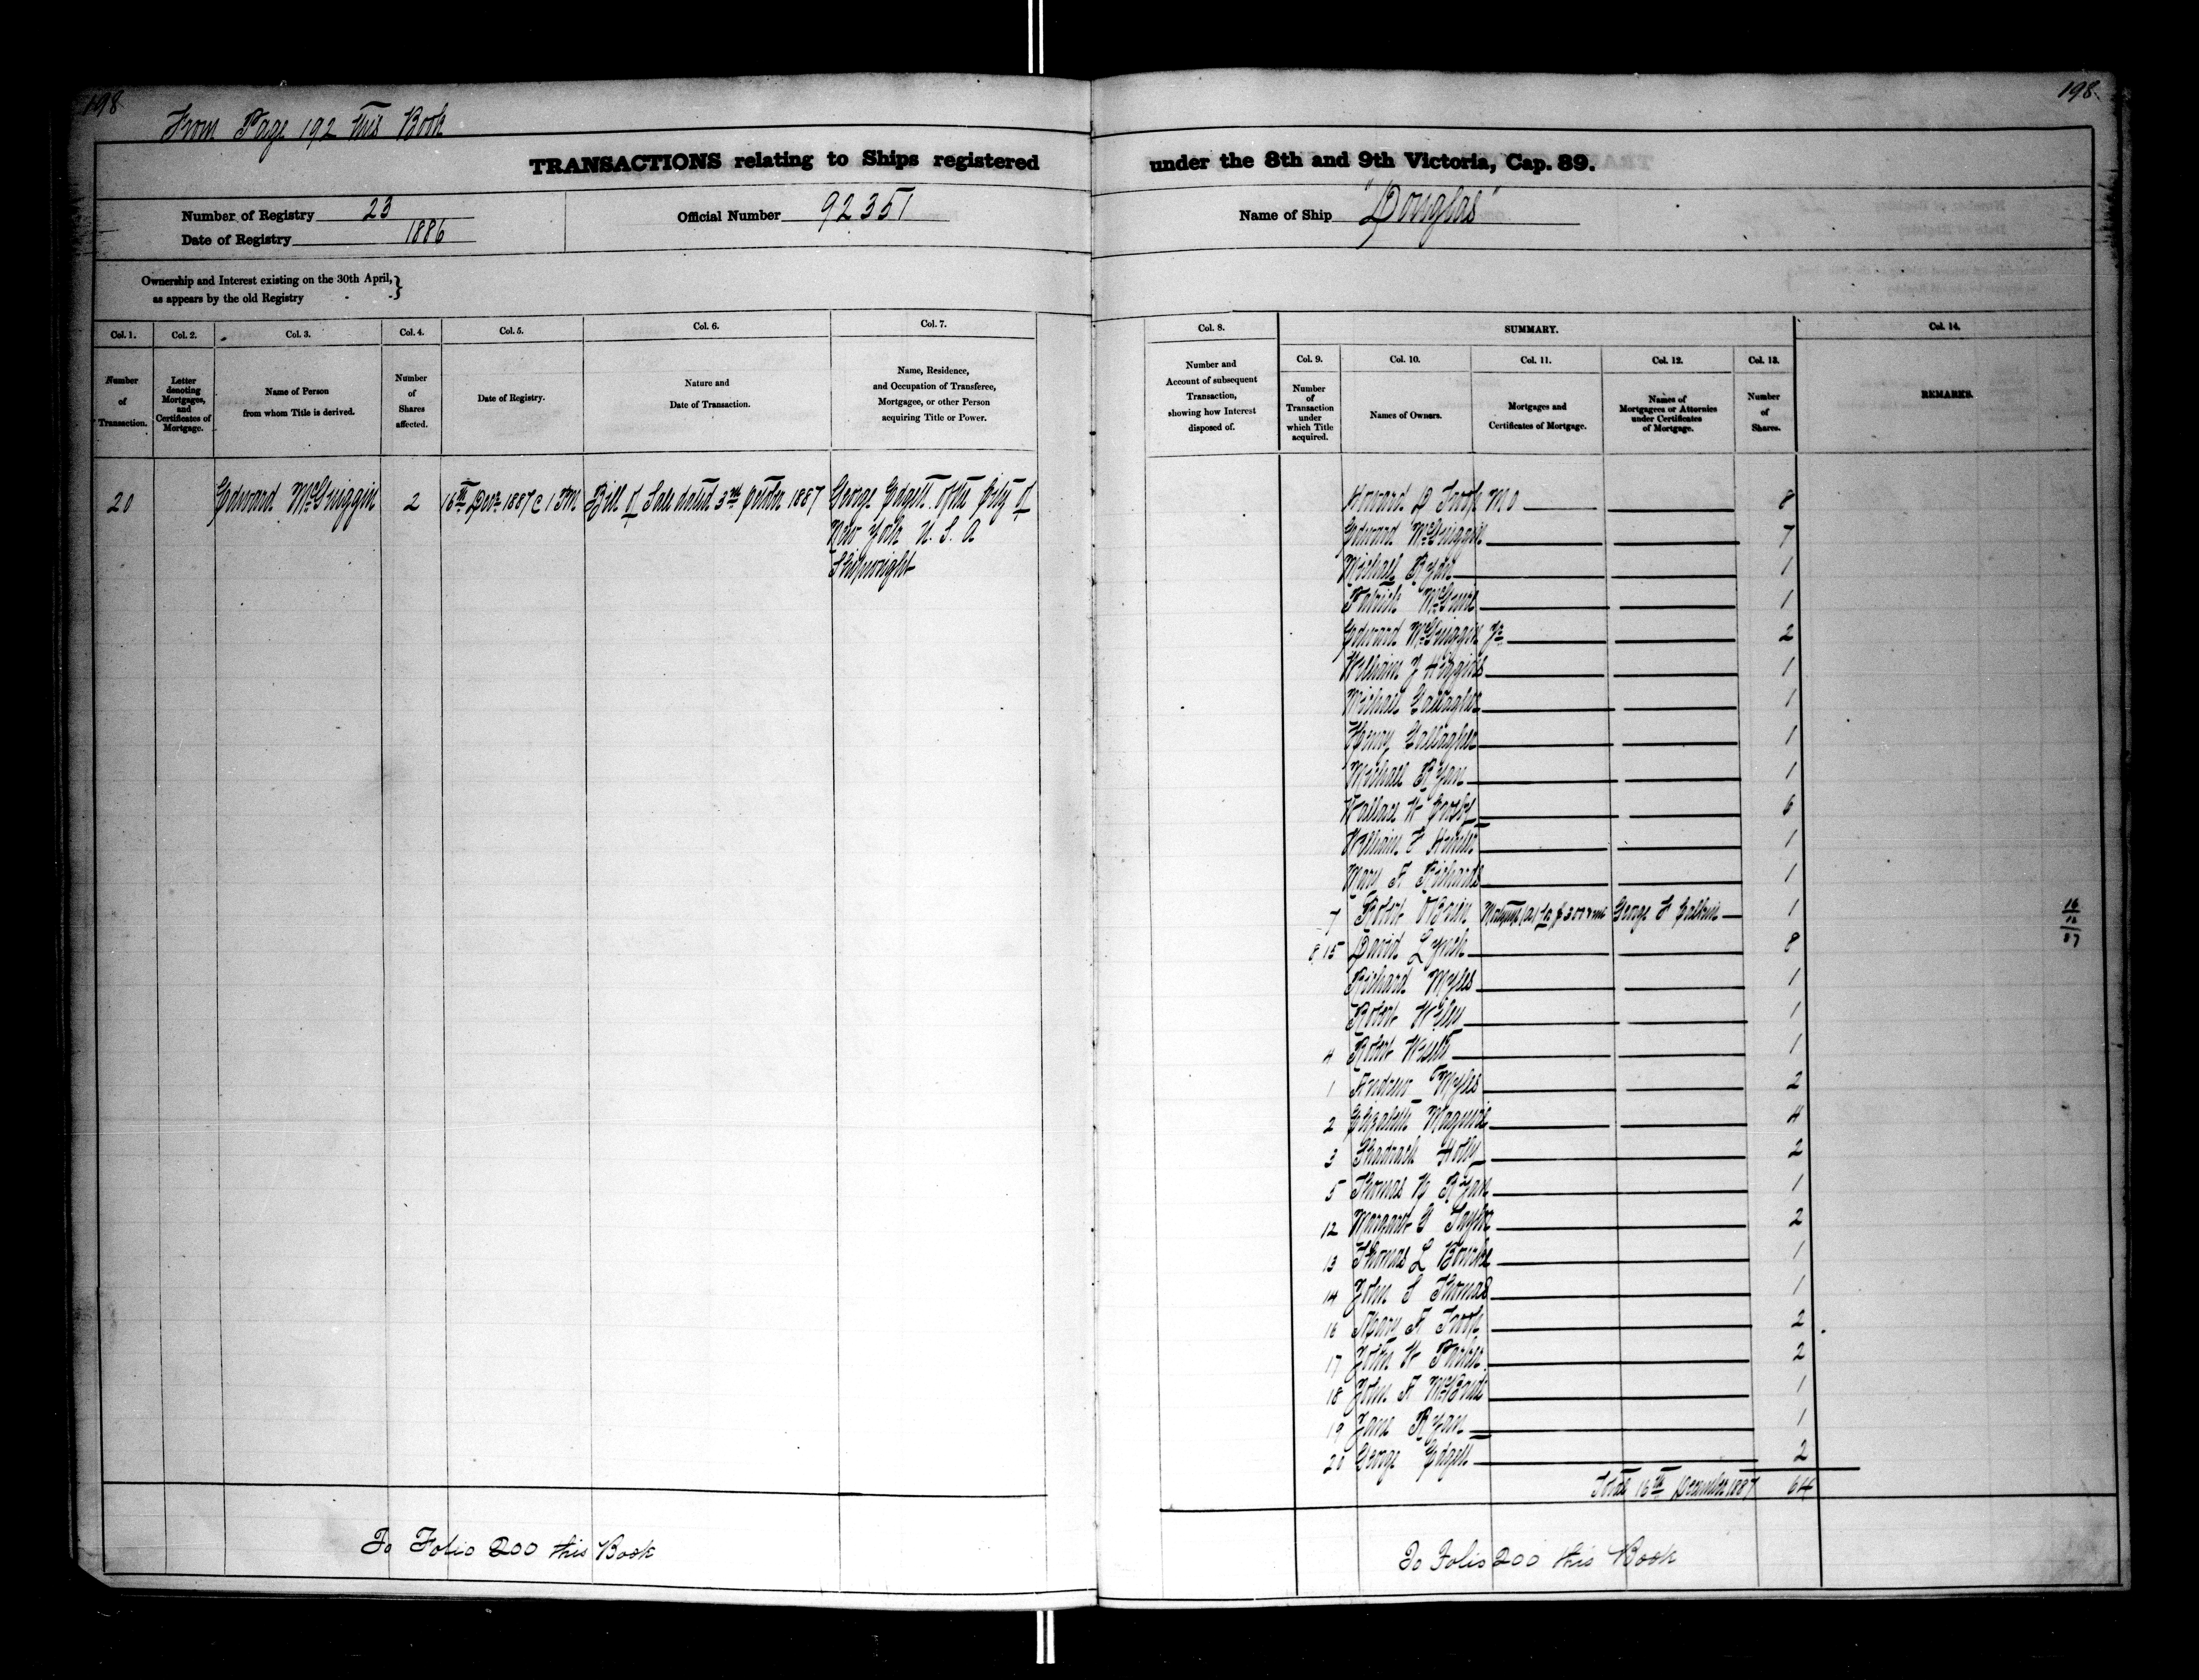 198
From Page 192 this Book
198
TRANSACTIONS relating to Ships registered under the 8th and 9th Victoria, Cap. 89.
Number of Registry 23
Date of Registry 1886
Official Number 92351
Name of Ship "Douglas"
Ownership and Interest existing on the 30th April,}
as appears by the old Registry
Col. 1. Col. 2. Col. 3. Col. 4. Col. 5. Col. 6. Col. 7. Col. 8. SUMMARY. Col. 14.
Col. 9. Col. 10. Col. 11. Col. 12. Col. 13.
Number of Transaction.
Letter denoting Mortgages, and Certificates of Mortgage.
Name of Person from whom Title is derived.
Number of Shares affected.
Date of Registry.
Nature and Date of Transaction.
Name, Residence, and Occupation of Transferee, Mortgagee, or other Person acquiring Title or Power.
Number and Account of subsequent Transaction, showing how Interest disposed of.
Number of Transaction under which Title acquired.
Names of Owners.
Mortgages and Certificates of Mortgage.
Names of Mortgagees or Attornies under Certificates of Mortgage.
Number of Shares.
REMARKS.
20 Edward McGuiggin 2 16th Decr 1887 @ 1 PM Bill of Sale dated 3rd October 1887 George Edgett of the City of
New York U. S. A
Shipwright
Howard D Troop M O 8
Edward McGuiggin 7
Michael Ryan 1
Patrick 1
Edward McGuiggin Jr 2
William J Higgins 1
Michael Gallagher 1
Henry Gallagher 1
Michael Ryan 1
Wallace W 6
William F 1
Mary A Richards 1
7 Robert O'Brien Mortgage (A) George F 1
16
12
87
8 15 David Lynch 8
Richard Myles 1
Robert Wiley 1
4 Robert 1
1 Andrew Myles 2
2 Elizabeth Maguire 4
3 Shadrach Holly 2
5 Thomas Ryan 1
12 Margaret G Taylor 2
13 Thomas L Bourke 1
14 John S Thomas 1
16 Mary A Troop 2
17 John W Parker 2
18 John A McBride 1
19 Jane Ryan 1
20 George Edgett 2
Total 16th December 1887 64
To Folio 200 this Book
To Folio 200 this Book